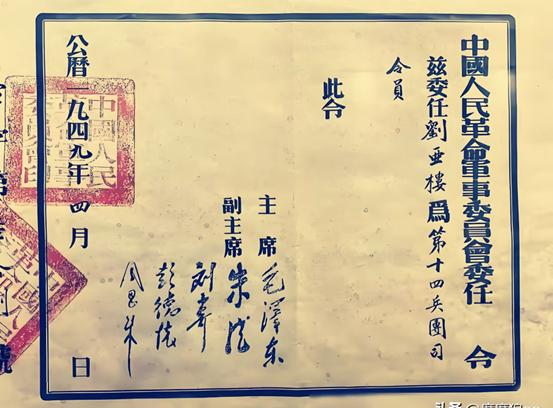 中國人民革命軍事委員會委任 令
茲委任劉亞樓爲第十四兵團司
令員
此令
主席 毛澤东
副主席 朱德
刘少奇
彭德怀
周恩来
公曆一九四九年四月 日
中國人民
革命軍事
委員會印
字第 號